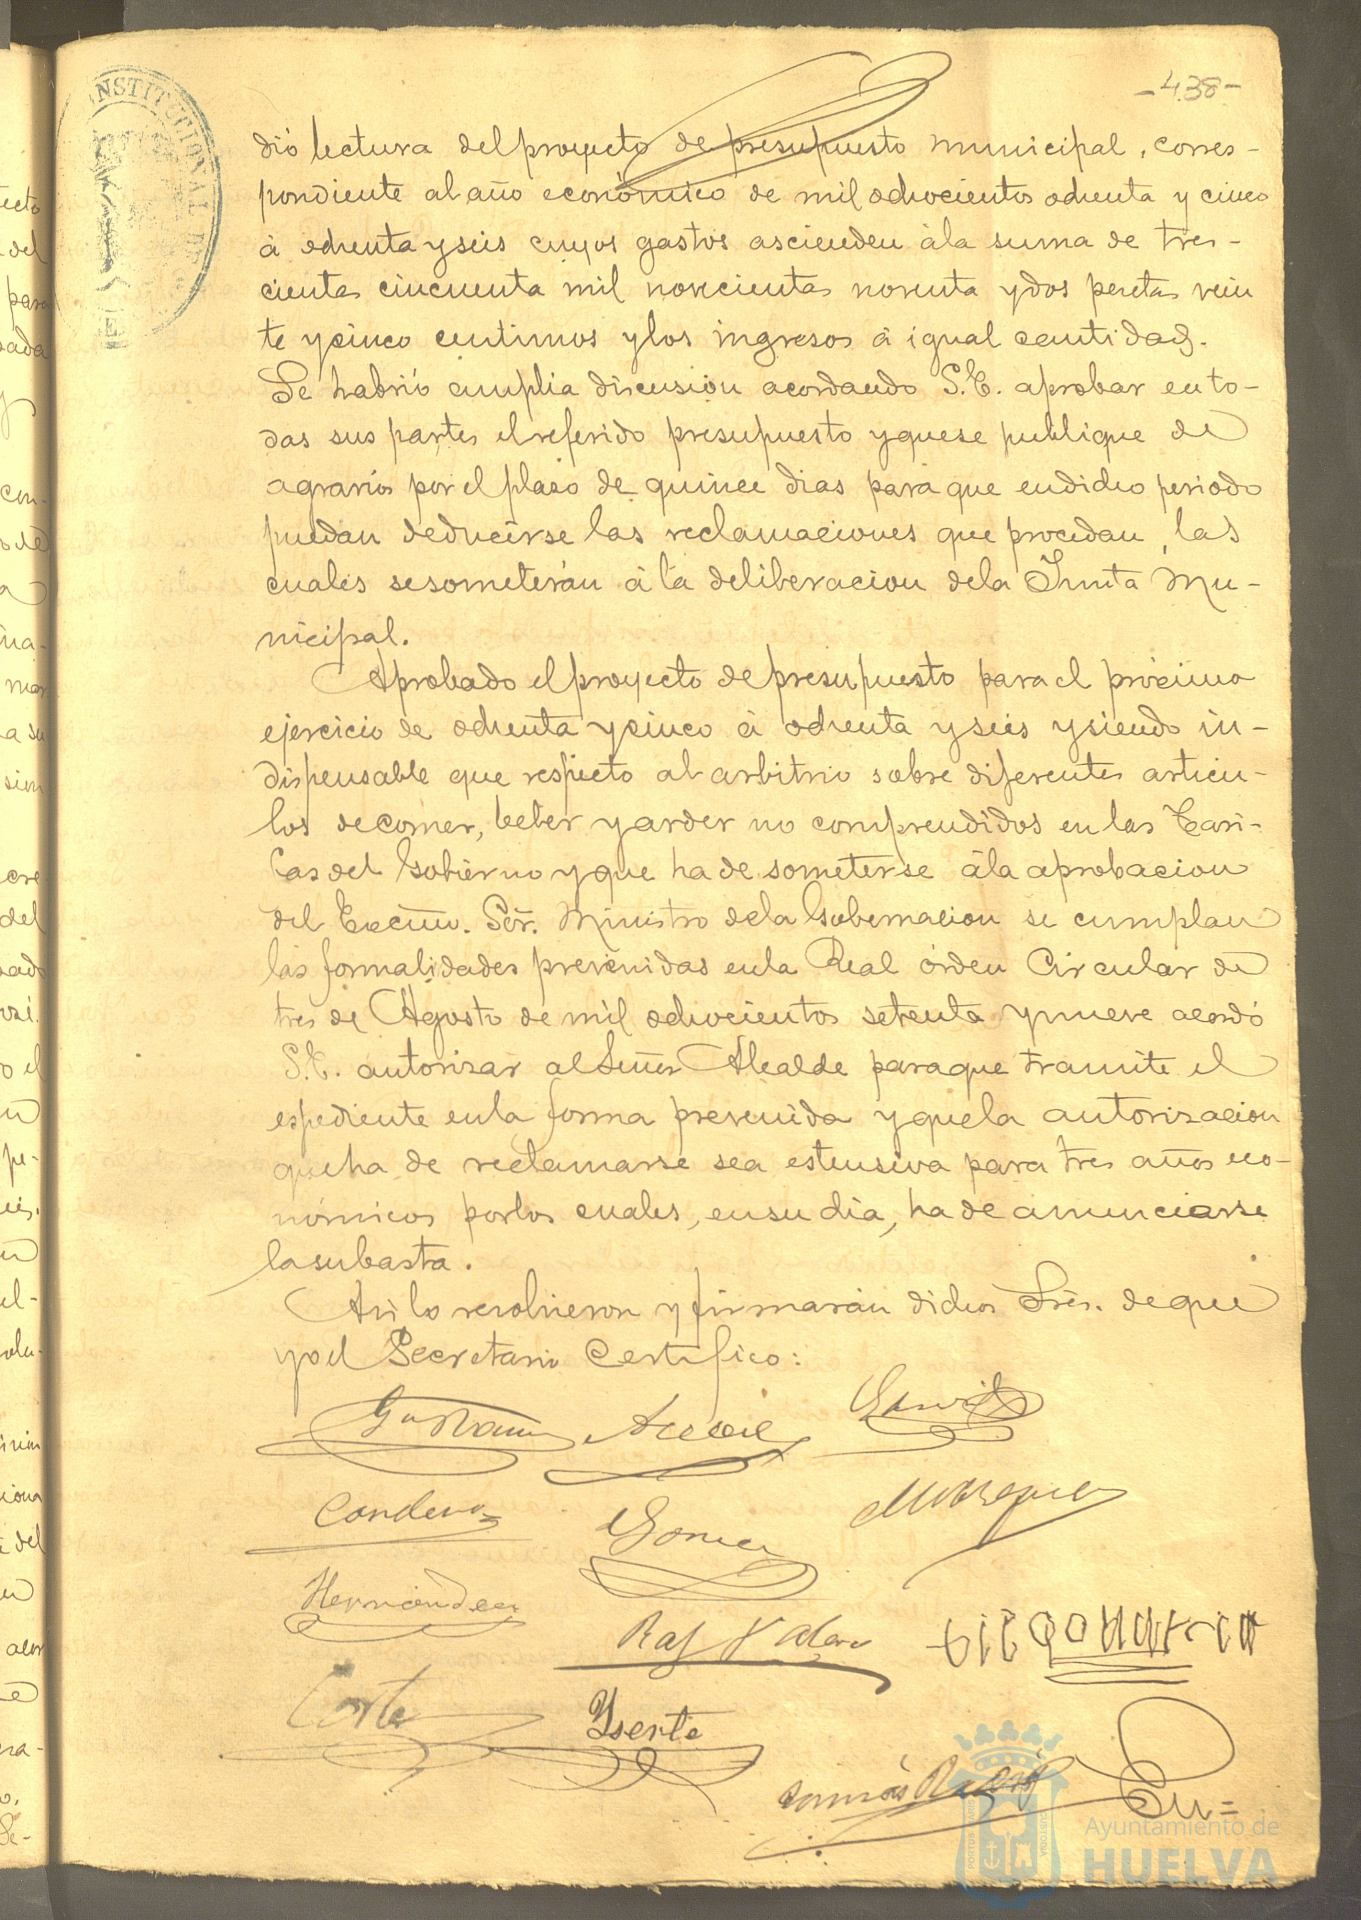 -438-
dió lectura del proyecto de presupuesto municipal, corres-
pondiente al año económico de mil odhocientos odhenta y cinco
á odhenta y seis cuyos gastos ascienden á la suma de tres-
cientas cincuenta mil novecientas noventa y dos pesetas vein
te y cinco centimos y los ingresos á igual cantidad.
Se habrió amplia discusion acordando S.E. aprobar en to-
das sus partes el referido presupuesto y que se publique de
agravios por el plaso de quince dias para que en dicho periodo
puedan deducirse las reclamaciones que procedan, las
cuales se someterán á la deliberacion de la Junta Mu-
nicipal.
Aprobado el proyecto de presupuesto para el próximo
ejercicio de odhenta y cinco á odhenta y seis y siendo in-
dispensable que respecto al arbitrio sobre diferentes articu-
los de comer, beber y arder no comprendidos en las Tari-
fas del Gobierno y que ha de someterse á la aprobacion
del Excmo. Sör. Ministro de la Gobernacion se cumplan
las formalidades prevenidas en la Real órden Circular de
tres de Agosto de mil odhocientos setenta y nueve acordó
S.E. autorizar al Señor Alcalde para que tramite el
espediente en la forma prevenida y que la autorizacion
que ha de reclamarse sea estensiva para tres años eco-
nómicos por los cuales, en su dia, ha de anunciarse
la subasta.
Asi lo resolvieron y firmarán dichos Sres. de que
yo el Secretario Certifico:
Garcia
Gomez
Hernandez
Raf
Corte
Yserte
Tomás
En=
Ayuntamiento de
HUELVA